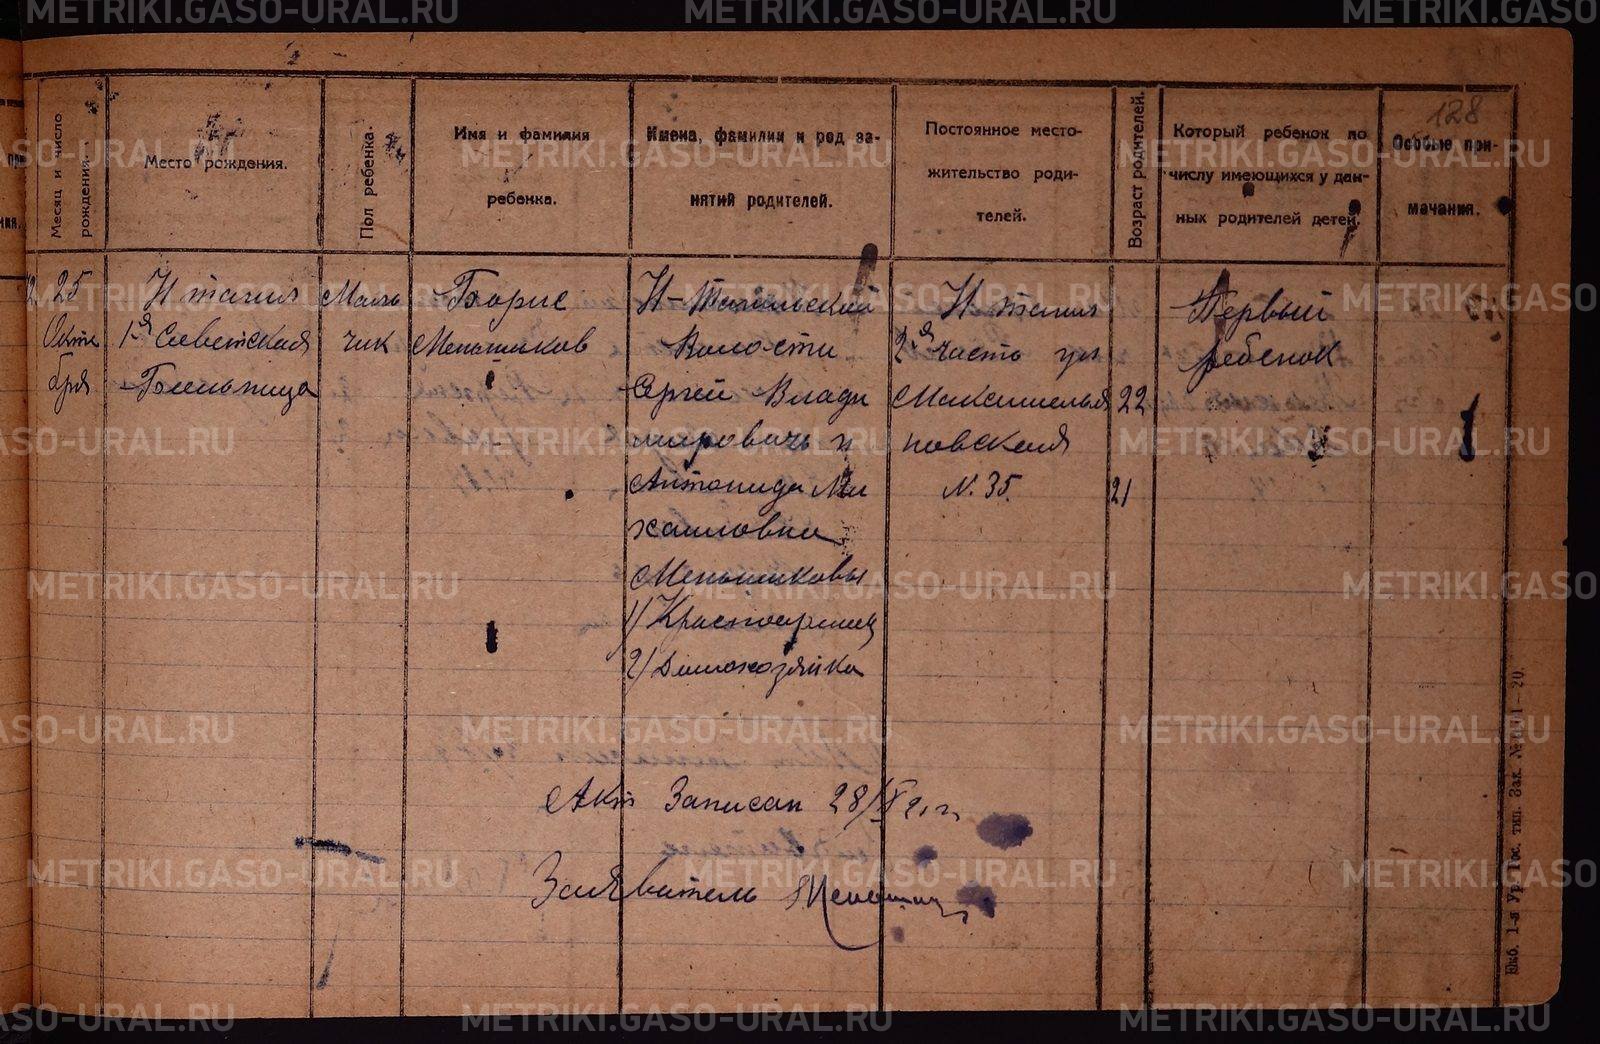 128
Месяц и число рождения.
Место рождения.
Пол ребенка.
Имя и фамилия
ребенка.
Имена, фамилии и род за-
нятий родителей.
Постоянное место-
жительство роди-
телей.
Возраст родителей.
Который ребенок по
числу имеющихся у дан-
ных родителей детей.
Особые при-
мачания.
25
Октя
бря
Н тагил
1ая Советская
Больница
Маль
чик
Борис
Меньшиков
Н-Тагильский
Волости
Сергей Влади
мировичь и
Антонида Ми
хаиловна
Меньшиковы
1) Красноармеец
2) Домохозяйка
Н тагил
2-я часть ул
Максимилья
новская
N. 35.
22
21
Первый
ребенок
Акт Записан 28/X 21 г.
Заявитель
Екб. 1-я Ур. Гос. тип. Зак.
METRIKI.GASO-URAL.RU